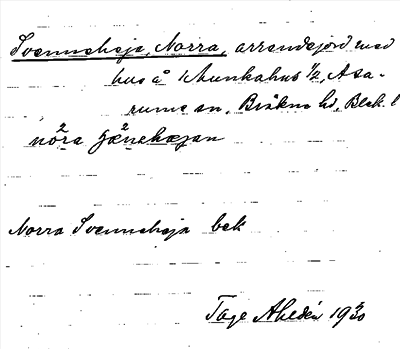 Svennshaja, Norra, arrendejord med
hus å Munkahus 1/2, Asa-
rums sn, Bräkne hd, Blek. l
nöra
Norra Svennshaja bek
Tage Ahldén 19 30